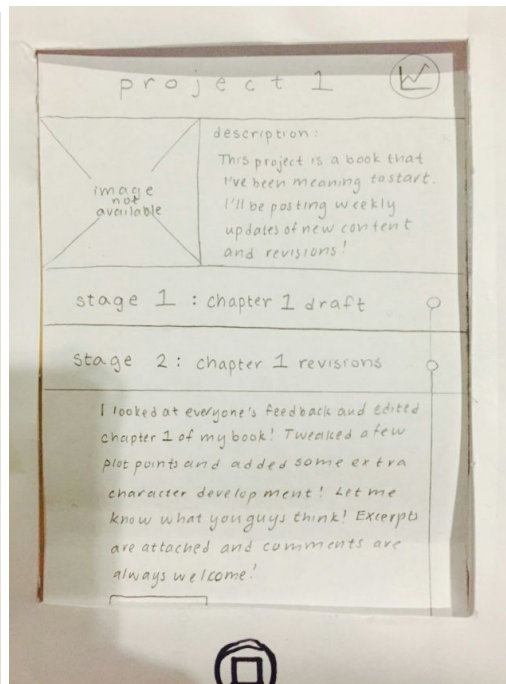 project 1
image
not
available
description:
This project is a book that
I've been meaning to start.
I'll be posting weekly
updates of new content
and revisions!
stage 1 : chapter 1 draft
stage 2: chapter 1 revisions
I looked at everyone's feedback and edited
chapter 1 of my book! Tweaked a few
plot points and added some extra
character development! Let me
know what you guys think! Excerpts
are attached and comments are
always welcome!